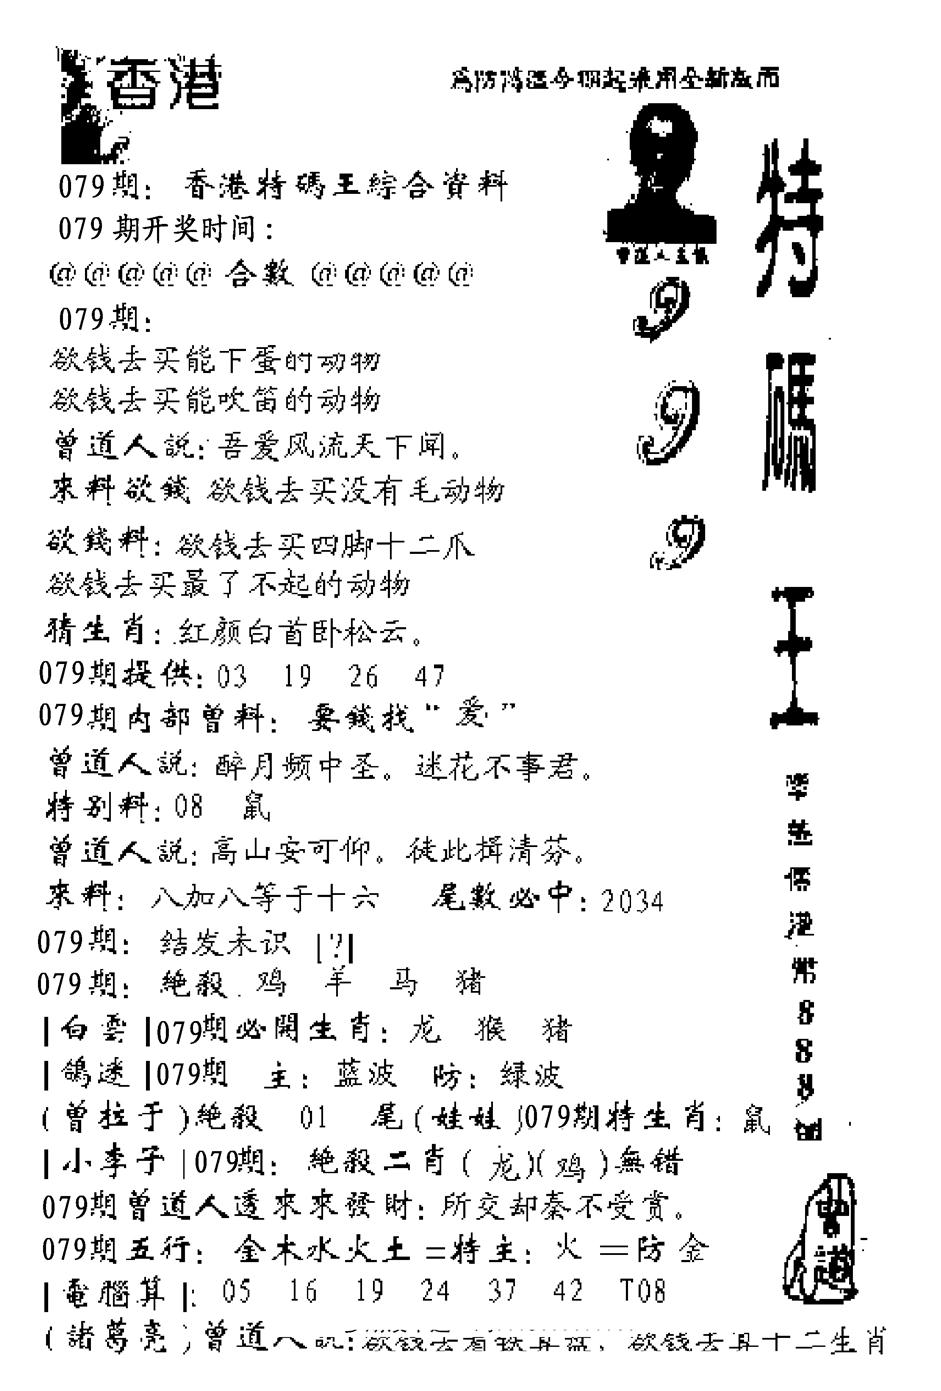 香港
為防搞混今期起采用全新版面
079期：香港特碼王綜合資料
079期开奖时间：
@@@@@合數@@@@@
079期：
欲钱去买能下蛋的动物
欲钱去买能吹笛的动物
曾道人説：吾爱风流天下闻。
來料欲錢 欲钱去买没有毛动物
欲錢料：欲钱去买四脚十二爪
欲钱去买最了不起的动物
猜生肖：红颜白首卧松云。
079期提供：03 19 26 47
079期内部曾料：要錢找“爱”
曾道人説：醉月频中圣。迷花不事君。
特别料：08 鼠
曾道人説：高山安可仰。徒此揖清芬。
來料：八加八等于十六 尾數必中：2034
079期：结发未识 [?]
079期：絶殺 鸡 羊 马 猪
|白雲|079期必開生肖：龙 猴 猪
|鴿迷|079期 主：蓝波 防：绿波
(曾拉于)絶殺 01 尾(娃娃)079期特生肖：鼠
|小李子|079期：絶殺二肖(龙)(鸡)無错
079期曾道人透來來發財：所交却秦不受赏。
079期五行：金木水火土=特主：火 =防金
|電腦算|：05 16 19 24 37 42 T08
(諸葛亮)曾道人説：欲钱去看 欲钱去 十二生肖
曾道人主儀
9
9
9
特
碼
王
港
幣
8
8
8
曾道